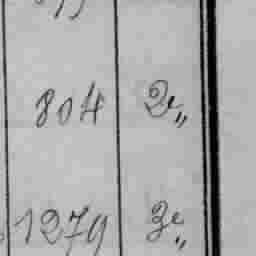 804 2e„
1279 3e„